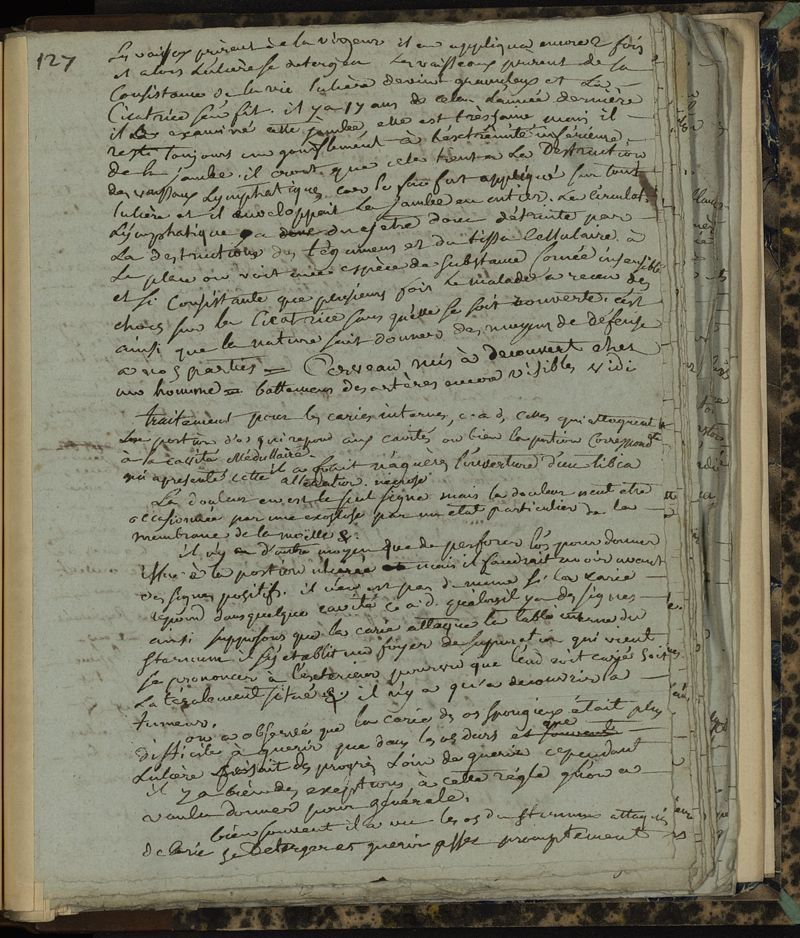 127
Les vaisseaux prirent de la vigeur il en appliqua encore 2 fois
et alors l'ulcère se detergea les vaisseaux prirent de la
Consistance de la vie l'ulcère devint granuleux et La
Cicatrice se fit. il y a 17 ans de cela l'année dernière
il a examiné cette jambe elle est très saine mais il
reste toujours un gonflement à l'extrémité inférieure
de la jambe. il croit que cela tient a La Destruction
des vaisseaux Lymphatiques, car le feu fut appliqué sur tout
l'ulcère et il enveloppait La jambe en entier. La Circulat.
Lymphatique a du être donc détruite par
La destruction des tégumens et du tissu Cellulaire. à
La place on voit une espèce de substance Cornée insensible
et si Consistante que plusieurs fois Le malade a recu des
chocs sur la Cicatrice sans qu'elle se soit rouverte. c'est
ainsi que la nature sait donner des moyens de défense
a nos parties = Cerveau mis à decouvert chez
un homme = battemens des artères encore visibles vidi
traitement pour les caries internes, c.a.d. celles qui attaquent
une portion d'os qui repond aux cavités ou bien la portion Correspondte
à la cavité Médullaire.
il a fait naguères l'ouverture d'un tibia
qui a presenté cette altération. necrose
La douleur en est le seul signe mais la douleur peut etre
occasionnée par une exostose par un état particulier de la
membrane de la moëlle &.
il n'y a d'autre moyen que de perforer l'os pour donner
issue à la portion ulcerée mais il faudrait avoir avant
des signes positifs. il n'en est pas de meme si la carie
repond dans quelque cavité c.a.d. qu'alors il y a des signes
ainsi supposons que la carie attaque la table interne du
sternum il s'y établit un foyer de supuration qui vient
se prononcer à l'exterieur pourvu que l'endroit carié soit
Latéralement situé &. il n'y a qu'a decouvrir la
tumeur.
on a observé que la carie des os spongieux était plus
difficile à guerir que dans les os durs et que souvent
l'ulcère faisait des progrès Loin de guerir cependant
il y a bien des exceptions à cette règle qu'on a
voulu donner pour générale.
bien souvent il a vu les os du sternum attaqués
de Carie se Deterger et guerir assez promptement